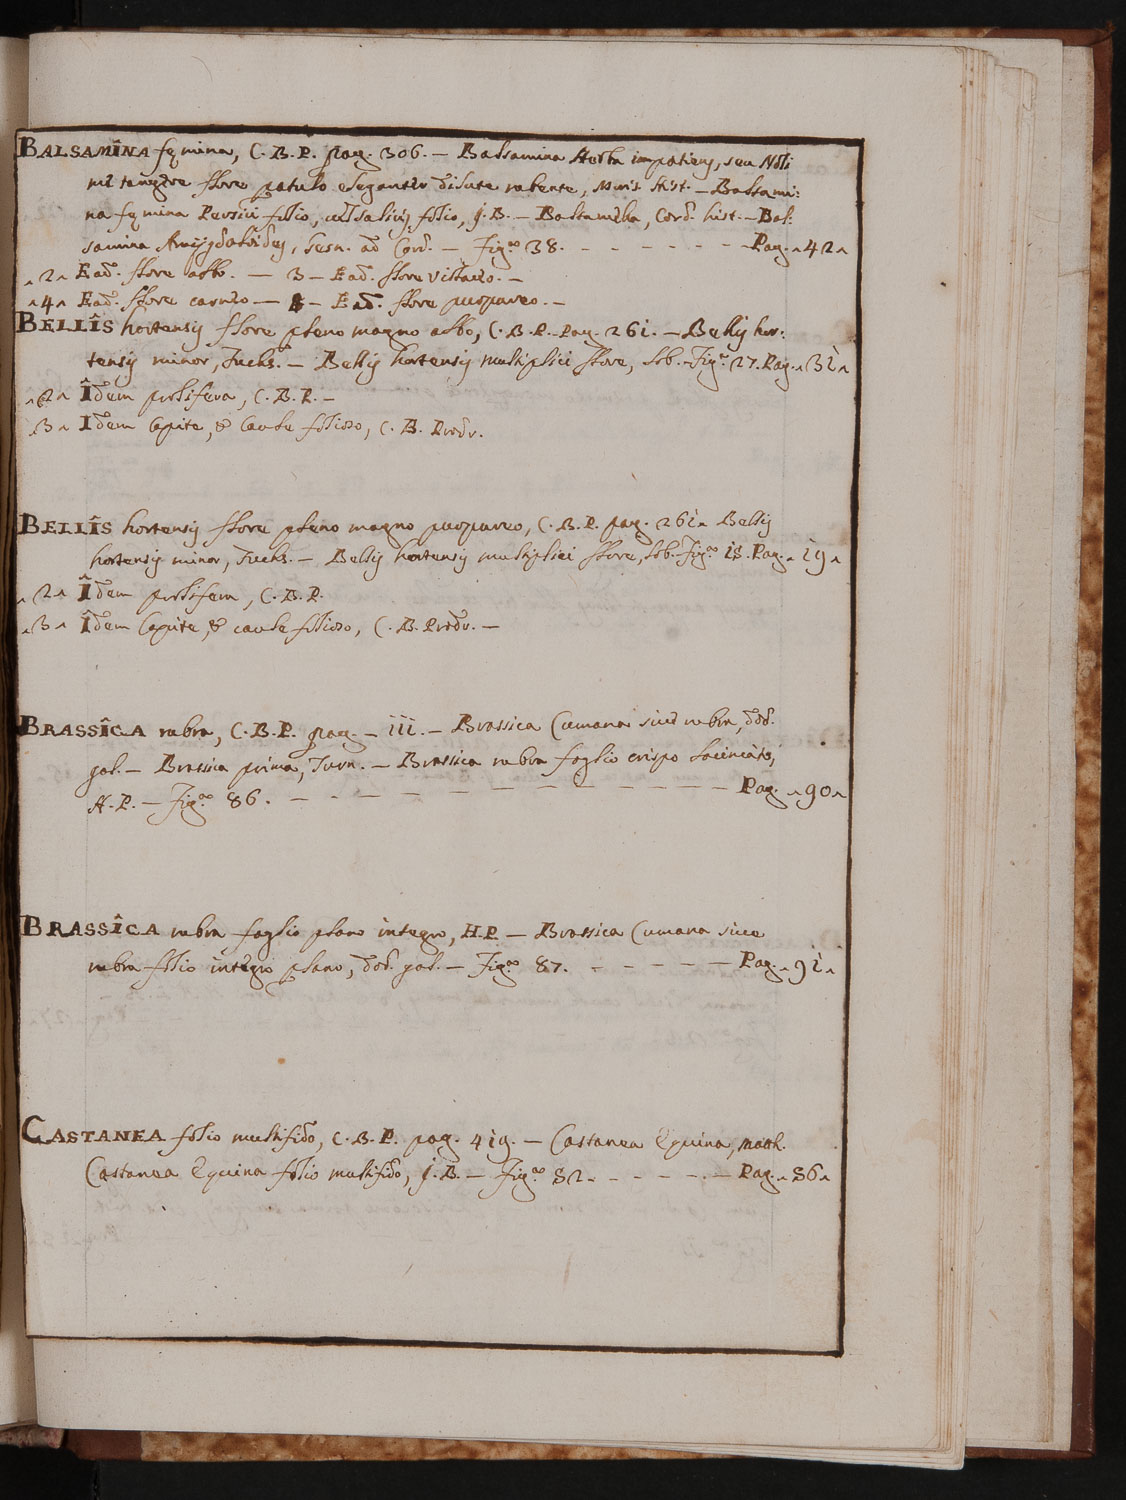 BALSAMÎNA fęmina, C.B.P. pag. 306. – Balsamina Herba impatiens, seu Noli
me tangere flore patulo eleganter dilute rubente, Moris. Hist. – Balsami:
na fęmina Persici folio, vel Salicis folio, J.B. – Balsamella, Cord. hist. – Bal:
samina Amygdaloides, Gesn. ad Cord. – Fig.ᵃ 38. – – – – – – – Pag. ^42^
^2^ Ead. flore albo. – 3 – Ead. flore violaceo. –
^4^ Ead. flore carneo – 5 – Ead. flore purpureo. –
BELLÎS hortensis flore pleno magno albo, C.B.P. Pag. 261. – Bellis hor:
tensis minor, Fuchs. – Bellis hortensis multiplici flore, Lob. Fig.ᵃ 27. Pag. ^31^
^2^ Îdem prolifera, C.B.P. –
^3^ Idem Capite, & Caule folioso, C.B. Prodr.
BELLÎS hortensis flore pleno magno purpureo, C.B.P. pag. 261. Bellis
hortensis minor, Fuchs. – Bellis hortensis multiplici flore, Lob. Fig.ᵃ 15. Pag. ^19^
^2^ Îdem prolifera, C.B.P.
^3^ Îdem Capite, & caule folioso, C.B. Prodr. –
BRASSÎCA rubra, C.B.P. pag. – 111. – Brassica Cumana sive rubra, Dod.
gal. – Brassica prima, Turn. – Brassica rubra foglio crispo laciniato,
H.P. – Fig.ᵃ 86. – – – – – – – – – – – – – Pag. ^90^
BRASSÎCA rubra foglio plano integro, H.P. – Brassica Cumana sive
rubra folio integro plano, Dod. gal. – Fig.ᵃ 87. – – – – – – Pag. ^91^
CASTANEA folio multifido, C.B.P. pag. 419. – Castanea Equina, Math.
Castanea Equina folio multifido, J.B. – Fig.ᵃ 82. – – – – – – Pag. ^86^